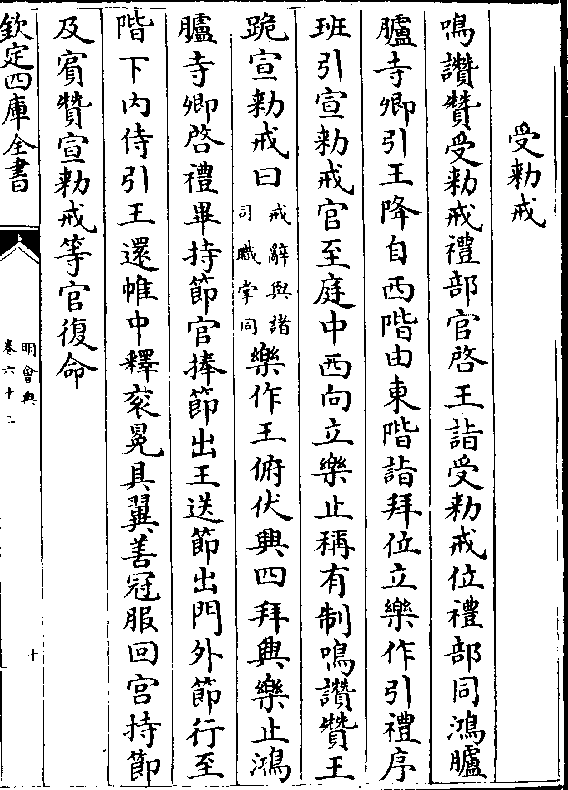 受勅戒
鳴讚贊受勅戒禮部官啓王詣受勅戒位禮部同鴻臚
臚寺卿引王降自西階由東階詣拜位立樂作引禮序
班引宣勅戒官至庭中西向立樂止稱有制鳴讚贊王
跪宣勅戒曰戒辭與諸司職掌同樂作王俯伏興四拜興樂止鴻
臚寺卿啓禮畢持節官捧節出王送節出門外節行至
階下内侍引王還帷中釋衮冕具翼善冠服回宫持節
及賓贊宣勅戒等官復命
欽定四庫全書
明會典
卷六十二
十